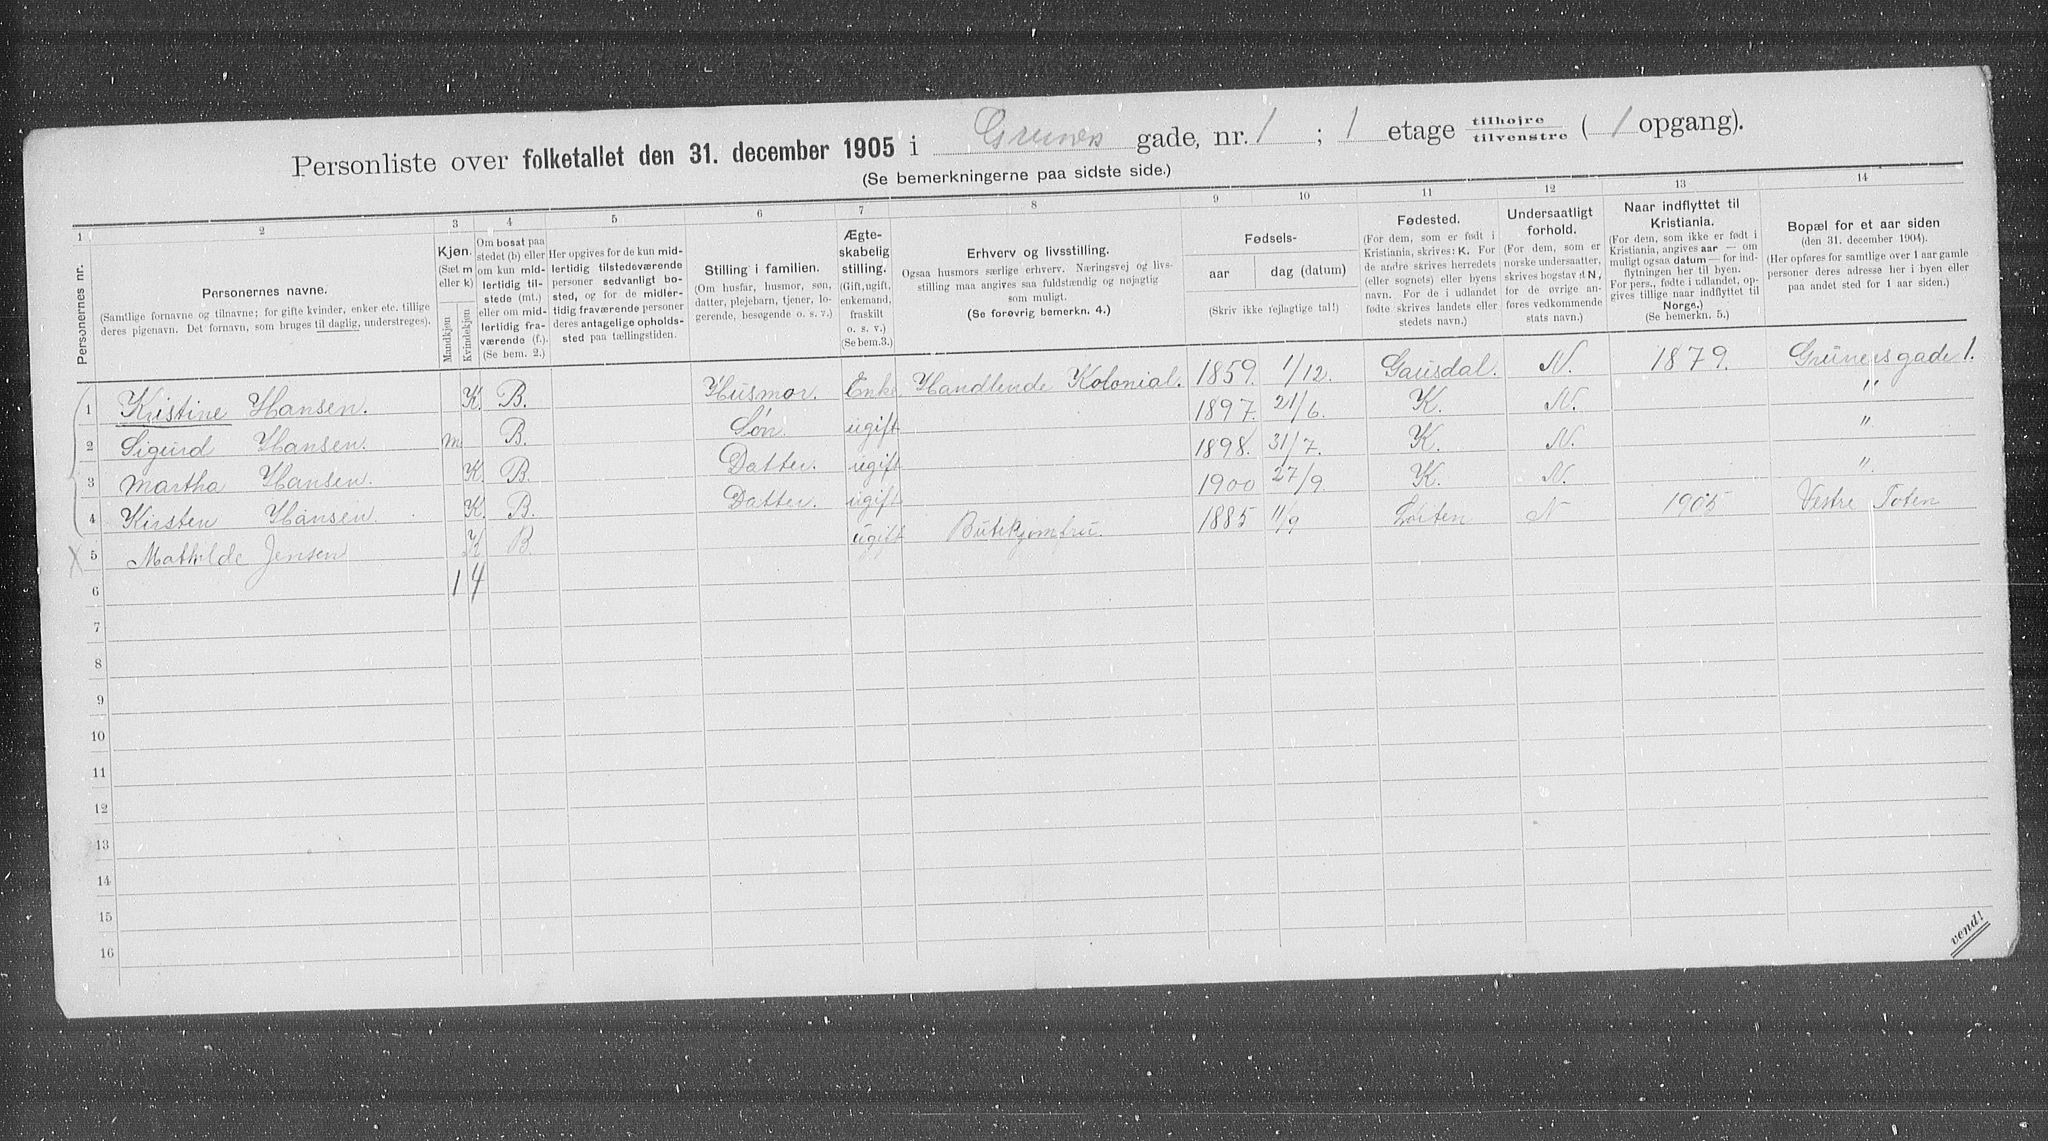 Personliste over folketallet den 31. december 1905 i Gruners gade, nr. 1 ; 1 etage tilhøjre / tilvenstre ( 1 opgang).
(Se bemerkningerne paa sidste side.)
1 2 3 4 5 6 7 8 9 10 11 12 13 14
Personernes nr.
Personernes navne.
(Samtlige fornavne og tilnavne; for gifte kvinder, enker etc. tillige
deres pigenavn. Det fornavn, som bruges til daglig, understreges).
Kjøn.
(Sæt m
eller k)
Mandkjøn
Kvindekjøn
Om bosat paa
stedet (b) eller
om kun mid-
lertidig til-
stede (mt.)
eller om mid-
lertidig fra-
værende (f.).
(Se bem. 2.)
Her opgives for de kun mid-
lertidig tilstedeværende
personer sedvanligt bo-
sted, og for de midler-
tidig fraværende personer
deres antagelige opholds-
sted paa tællingstiden.
Stilling i familien.
(Om husfar, husmor, søn,
datter, plejebarn, tjener, lo-
gerende, besøgende o. s. v.)
Ægte-
skabelig
stilling.
(Gift, ugift,
enkemand,
fraskilt
o. s. v.)
(Se bem.3.)
Erhverv og livsstilling.
Ogsaa husmors særlige erhverv. Næringsvej og livs-
stilling maa angives saa fuldstændig og nøjagtig
som muligt.
(Se forøvrig bemerkn. 4.)
Fødsels-
aar
dag (datum)
(Skriv ikke fejlagtige tal!)
Fødested.
(For dem, som er født i
Kristiania, skrives: K. For
de andre skrives herredets
(eller sognets) eller byens
navn. For de i udlandet
fødte skrives landets eller
stedets navn.)
Undersaatligt
forhold.
(For dem, som er
norske undersaatter,
skrives bogstav N,
for de øvrige an-
føres vedkommende
stats navn.)
Naar indflyttet til
Kristiania.
(For dem, som ikke er født i
Kristiania, angives aar — om
muligt ogsaa datum — for ind-
flytningen her til byen.
For pers., fødte i udlandet, op-
gives tillige naar indflyttet til
Norge.)
(Se bemerkn. 5.)
Bopæl for et aar siden
(den 31. december 1904).
(Her opføres for samtlige over 1 aar gamle
personer deres adresse her i byen eller
paa andet sted for 1 aar siden.)
1 Kristine Hansen. K. B. Husmor. Enke Handlende Kolonial. 1859. 1/12. Gausdal. N. 1879. Grünersgade 1.
2 Sigurd Hansen. m B. Søn. ugift 1897. 21/6. K. N. "
3 Martha Hansen. K B. Datter. ugift 1898. 31/7. K. N. "
4 Kirsten Hansen. K. B. Datter. ugift 1900 27/9. K. N. "
X 5 Mathilde Jensen K B. ugift Butikjomfru. 1885 11/9 Løiten N 1905 Vestre Toten
6 1 4
7
8
9
10
11
12
13
14
15
16
vend!